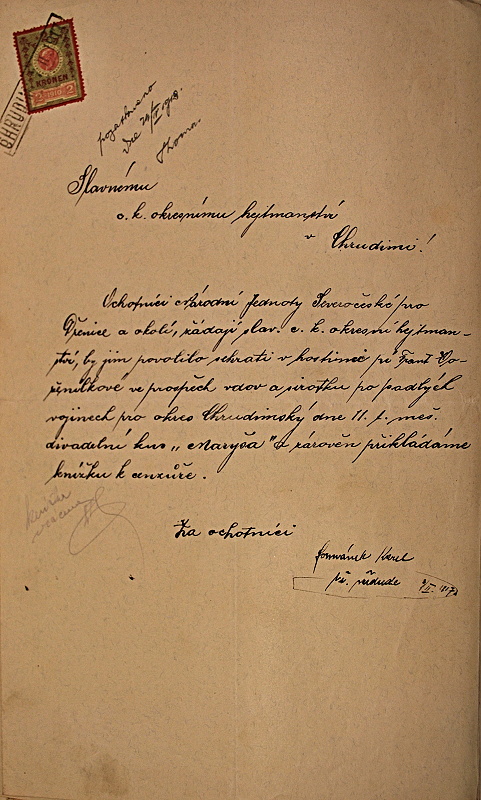 CHRUDIM
KRONEN
2 1910 2
dne 24/II 1918.
Slavnému
c. k. okresnímu hejtmanství
v
Chrudimi!
Ochotníci Národní Jednoty Severočeské pro
a okolí, žádají slav. c. k. okresní hejtman-
ství, by jim povolilo sehrati v hostinci pí Frant. Vo-
ženílkové ve prospěch vdov a sirotků po padlých
vojínech pro okres Chrudimský dne 11. t. měs.
divadelní kus „Maryša" a zárověn přikládáme
knížku k cenzůře.
Za ochotníci
Karel